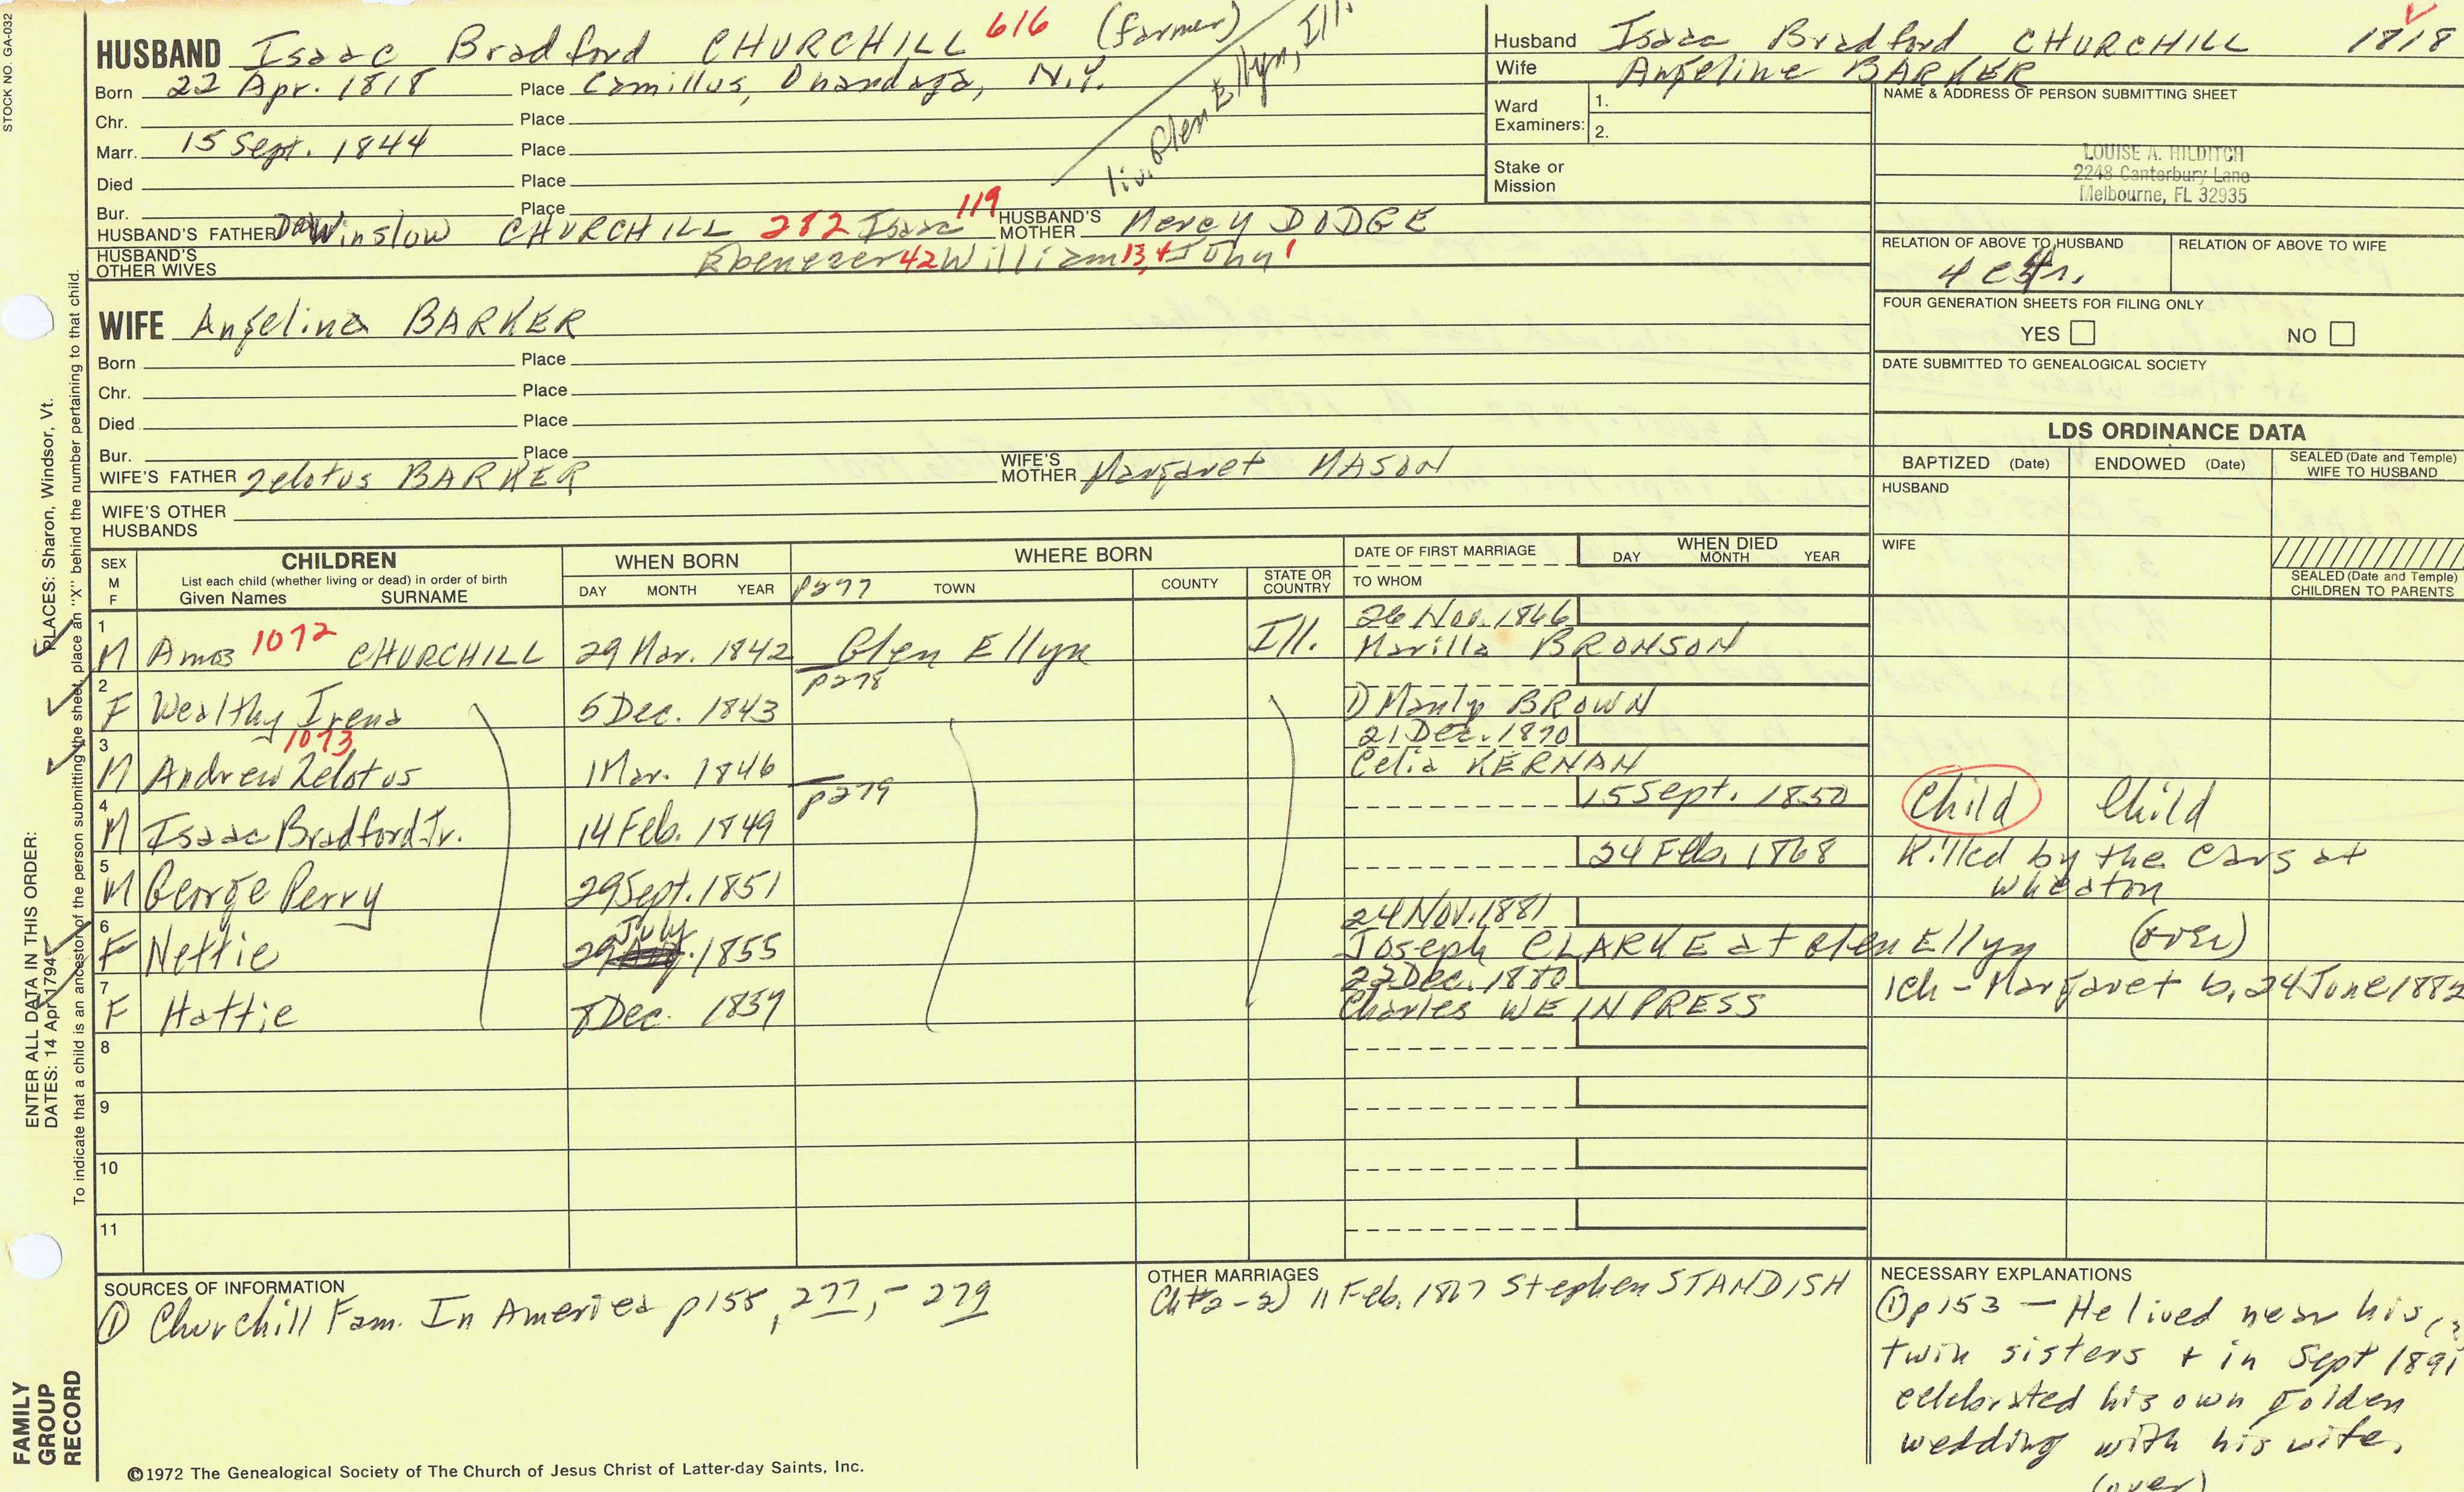 STOCK NO. GA-032
HUSBAND Isaac Bradford CHURCHILL 616 (farmer)
liv. Glen Ellyn, Ill.
Born 22 Apr. 1818 Place Camillus, Onandaga, N.Y.
Chr. Place
Marr. 15 Sept. 1844 Place
Died Place
Bur. Place
HUSBAND'S FATHER Winslow CHURCHILL 282 Isaac 119 HUSBAND'S MOTHER Mercy DODGE
HUSBAND'S OTHER WIVES Ebenezer 42 William 13, 4 John 1
WIFE Angelina BARKER
Born Place
Chr. Place
Died Place
Bur. Place
WIFE'S FATHER Zelotus BARKER WIFE'S MOTHER Margaret MASON
WIFE'S OTHER HUSBANDS
Husband Isaac Bradford CHURCHILL 1818
Wife Angeline BARKER
Ward Examiners: 1.
2.
Stake or Mission
NAME & ADDRESS OF PERSON SUBMITTING SHEET
LOUISE A. HILDITCH
2248 Canterbury Lane
Melbourne, FL 32935
RELATION OF ABOVE TO HUSBAND RELATION OF ABOVE TO WIFE
FOUR GENERATION SHEETS FOR FILING ONLY
YES NO
DATE SUBMITTED TO GENEALOGICAL SOCIETY
LDS ORDINANCE DATA
BAPTIZED (Date) ENDOWED (Date) SEALED (Date and Temple) WIFE TO HUSBAND
HUSBAND
WIFE
SEALED (Date and Temple) CHILDREN TO PARENTS
SEX M F CHILDREN WHEN BORN WHERE BORN DATE OF FIRST MARRIAGE WHEN DIED
List each child (whether living or dead) in order of birth
Given Names SURNAME DAY MONTH YEAR P277 TOWN COUNTY STATE OR COUNTRY TO WHOM DAY MONTH YEAR
1 M Amos 1072 CHURCHILL 29 Mar. 1842 Glen Ellyn Ill. 26 Nov. 1866 Marilla BRONSON
p278
2 F Wealthy Irena 5 Dec. 1843 1) Manly BROWN
3 M Andrew Zelotus 1073 1 Mar. 1846 21 Dec. 1870 Celia KERNAN
p279
4 M Isaac Bradford Jr. 14 Feb. 1849 15 Sept. 1850 Child Child
5 M George Perry 29 Sept. 1851 24 Feb. 1868 Killed by the cars at Wheaton
6 F Nettie 29 July 1855 24 Nov. 1881 Joseph CLARKE at Glen Ellyn (over)
7 F Hattie 8 Dec. 1859 22 Dec. 1880 Charles WEINPRESS 1ch - Margaret b. 24 June 1882
8
9
10
11
SOURCES OF INFORMATION
① Churchill Fam. In America p155, 277, - 279
OTHER MARRIAGES
Ch #2-2) 11 Feb. 1867 Stephen STANDISH
NECESSARY EXPLANATIONS
① p 153 — He lived near his
twin sisters + in Sept 1891
celebrated his own golden
wedding with his wife.
(over)
©1972 The Genealogical Society of The Church of Jesus Christ of Latter-day Saints, Inc.
FAMILY GROUP RECORD
ENTER ALL DATA IN THIS ORDER:
DATES: 14 Apr 1794
PLACES: Sharon, Windsor, Vt.
To indicate that a child is an ancestor of the person submitting the sheet, place an "X" behind the number pertaining to that child.